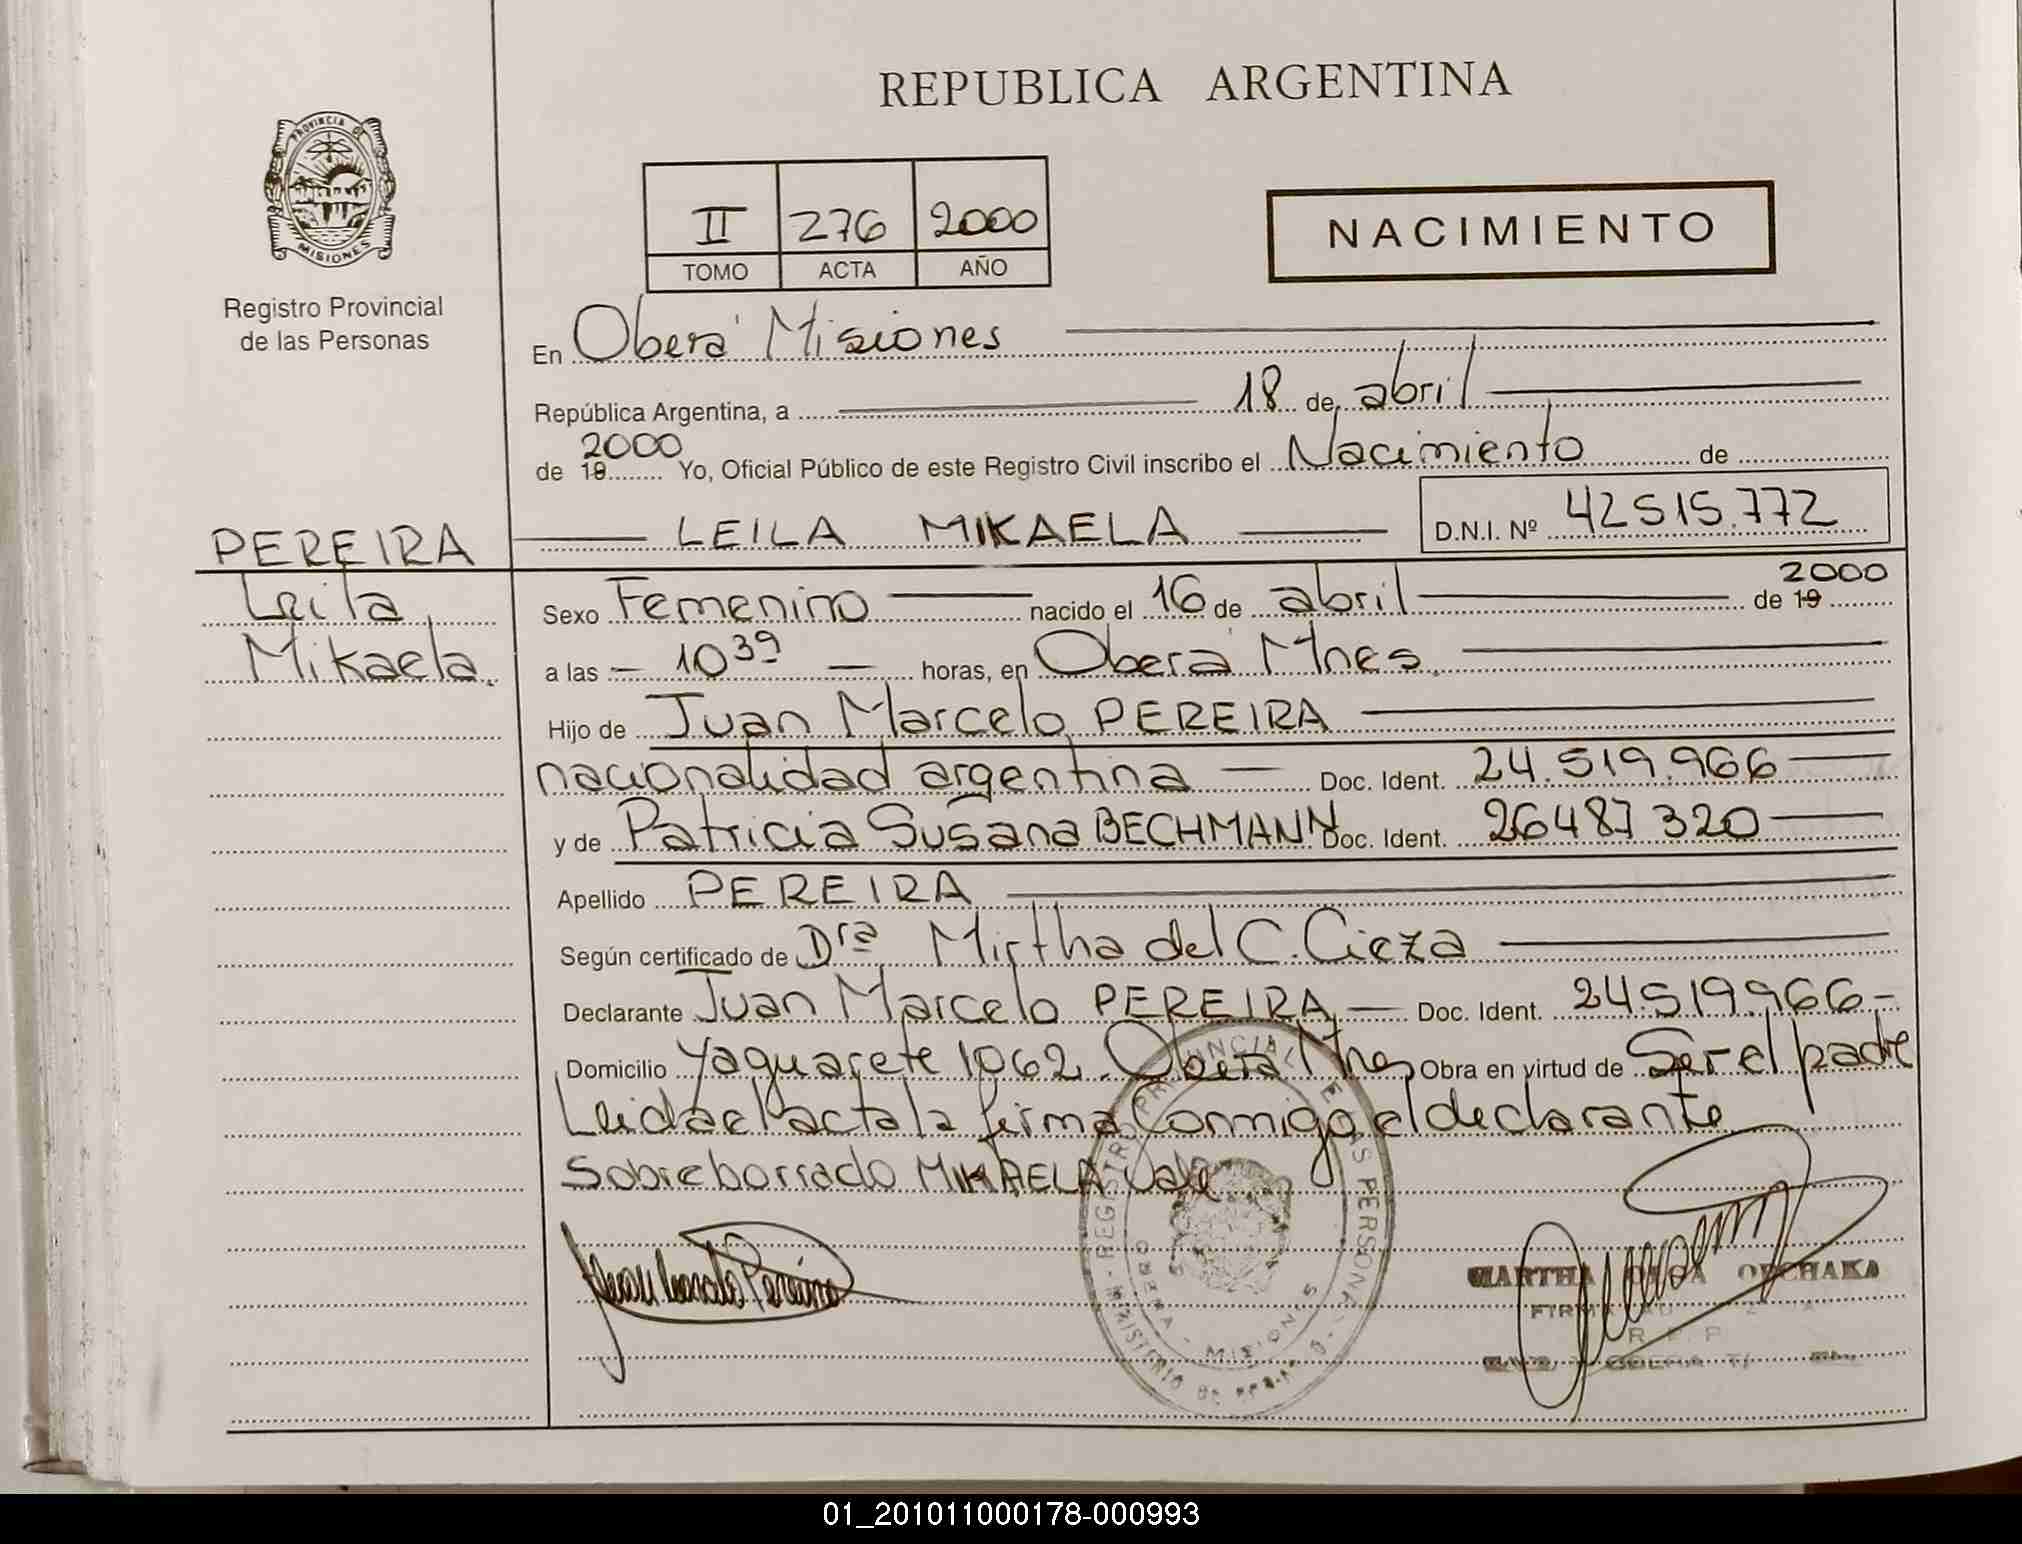 REPUBLICA ARGENTINA
PROVINCIA DE
MISIONES
Registro Provincial
de las Personas
II 276 2000
TOMO ACTA AÑO
NACIMIENTO
En Obera' Misiones
República Argentina, a 18 de abril
2000
de 19 Yo, Oficial Público de este Registro Civil inscribo el Nacimiento de
PEREIRA LEILA MIKAELA D.N.I. Nº 42515.772
Leila
Mikaela.
2000
Sexo Femenino nacido el 16 de abril de 19
a las 10 39 horas, en Obera' Mnes.
Hijo de Juan Marcelo PEREIRA
nacionalidad argentina Doc. Ident. 24.519.966
y de Patricia Susana BECHMANN Doc. Ident. 26487320
Apellido PEREIRA
Según certificado de Dra Mirtha del C. Cieza
Declarante Juan Marcelo PEREIRA Doc. Ident. 24519966
Domicilio Yaguarete 1062. Obera Mnes Obra en virtud de Ser el padre
Leida el acta la firma Conmigo el declarante
Sobreborrado MIKAELA Vale
REGISTRO PROVINCIAL DE LAS PERSONAS
MISIONES
MINISTERIO DE
MARTHA OLGA
01_201011000178-000993